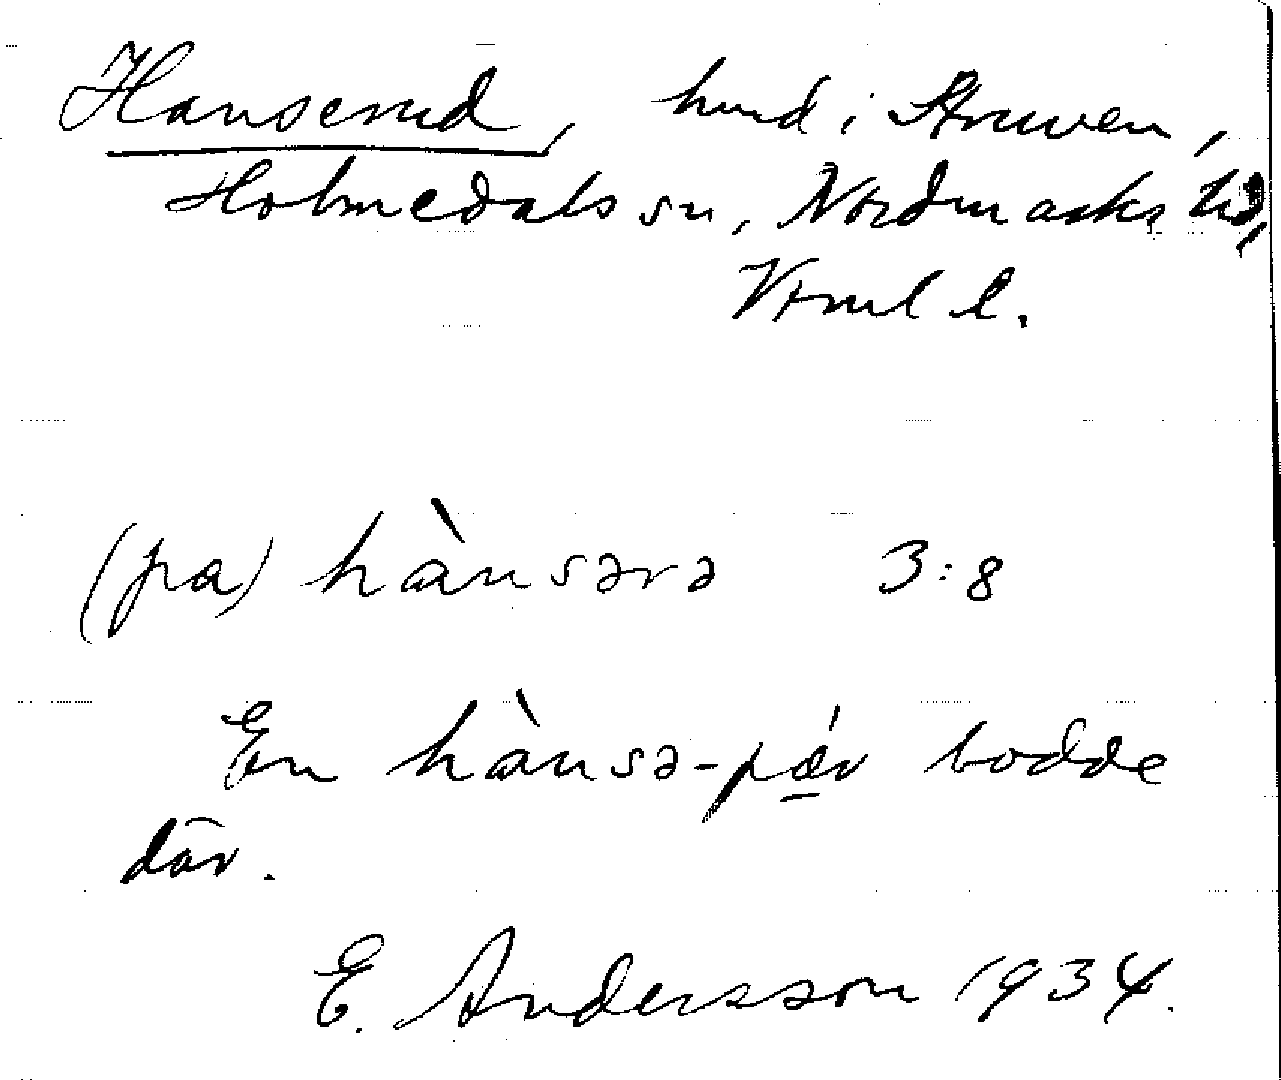 Hanserud, hmd i Struven,
Holmedals sn, Nordmarks hd,
Vrml l.
(pa) hànsərə 3:8
En hànsə-pǽ̱r bodde
där.
E. Andersson 1934.